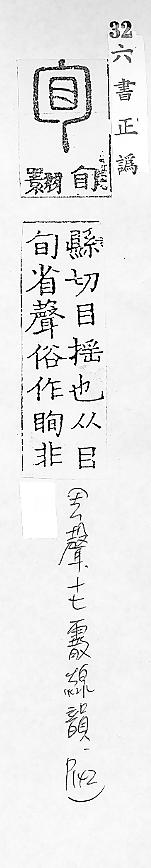 32
六書正譌
縣切目搖也从目
旬省聲俗作眴非
(去聲.十七霰線韻.P142)